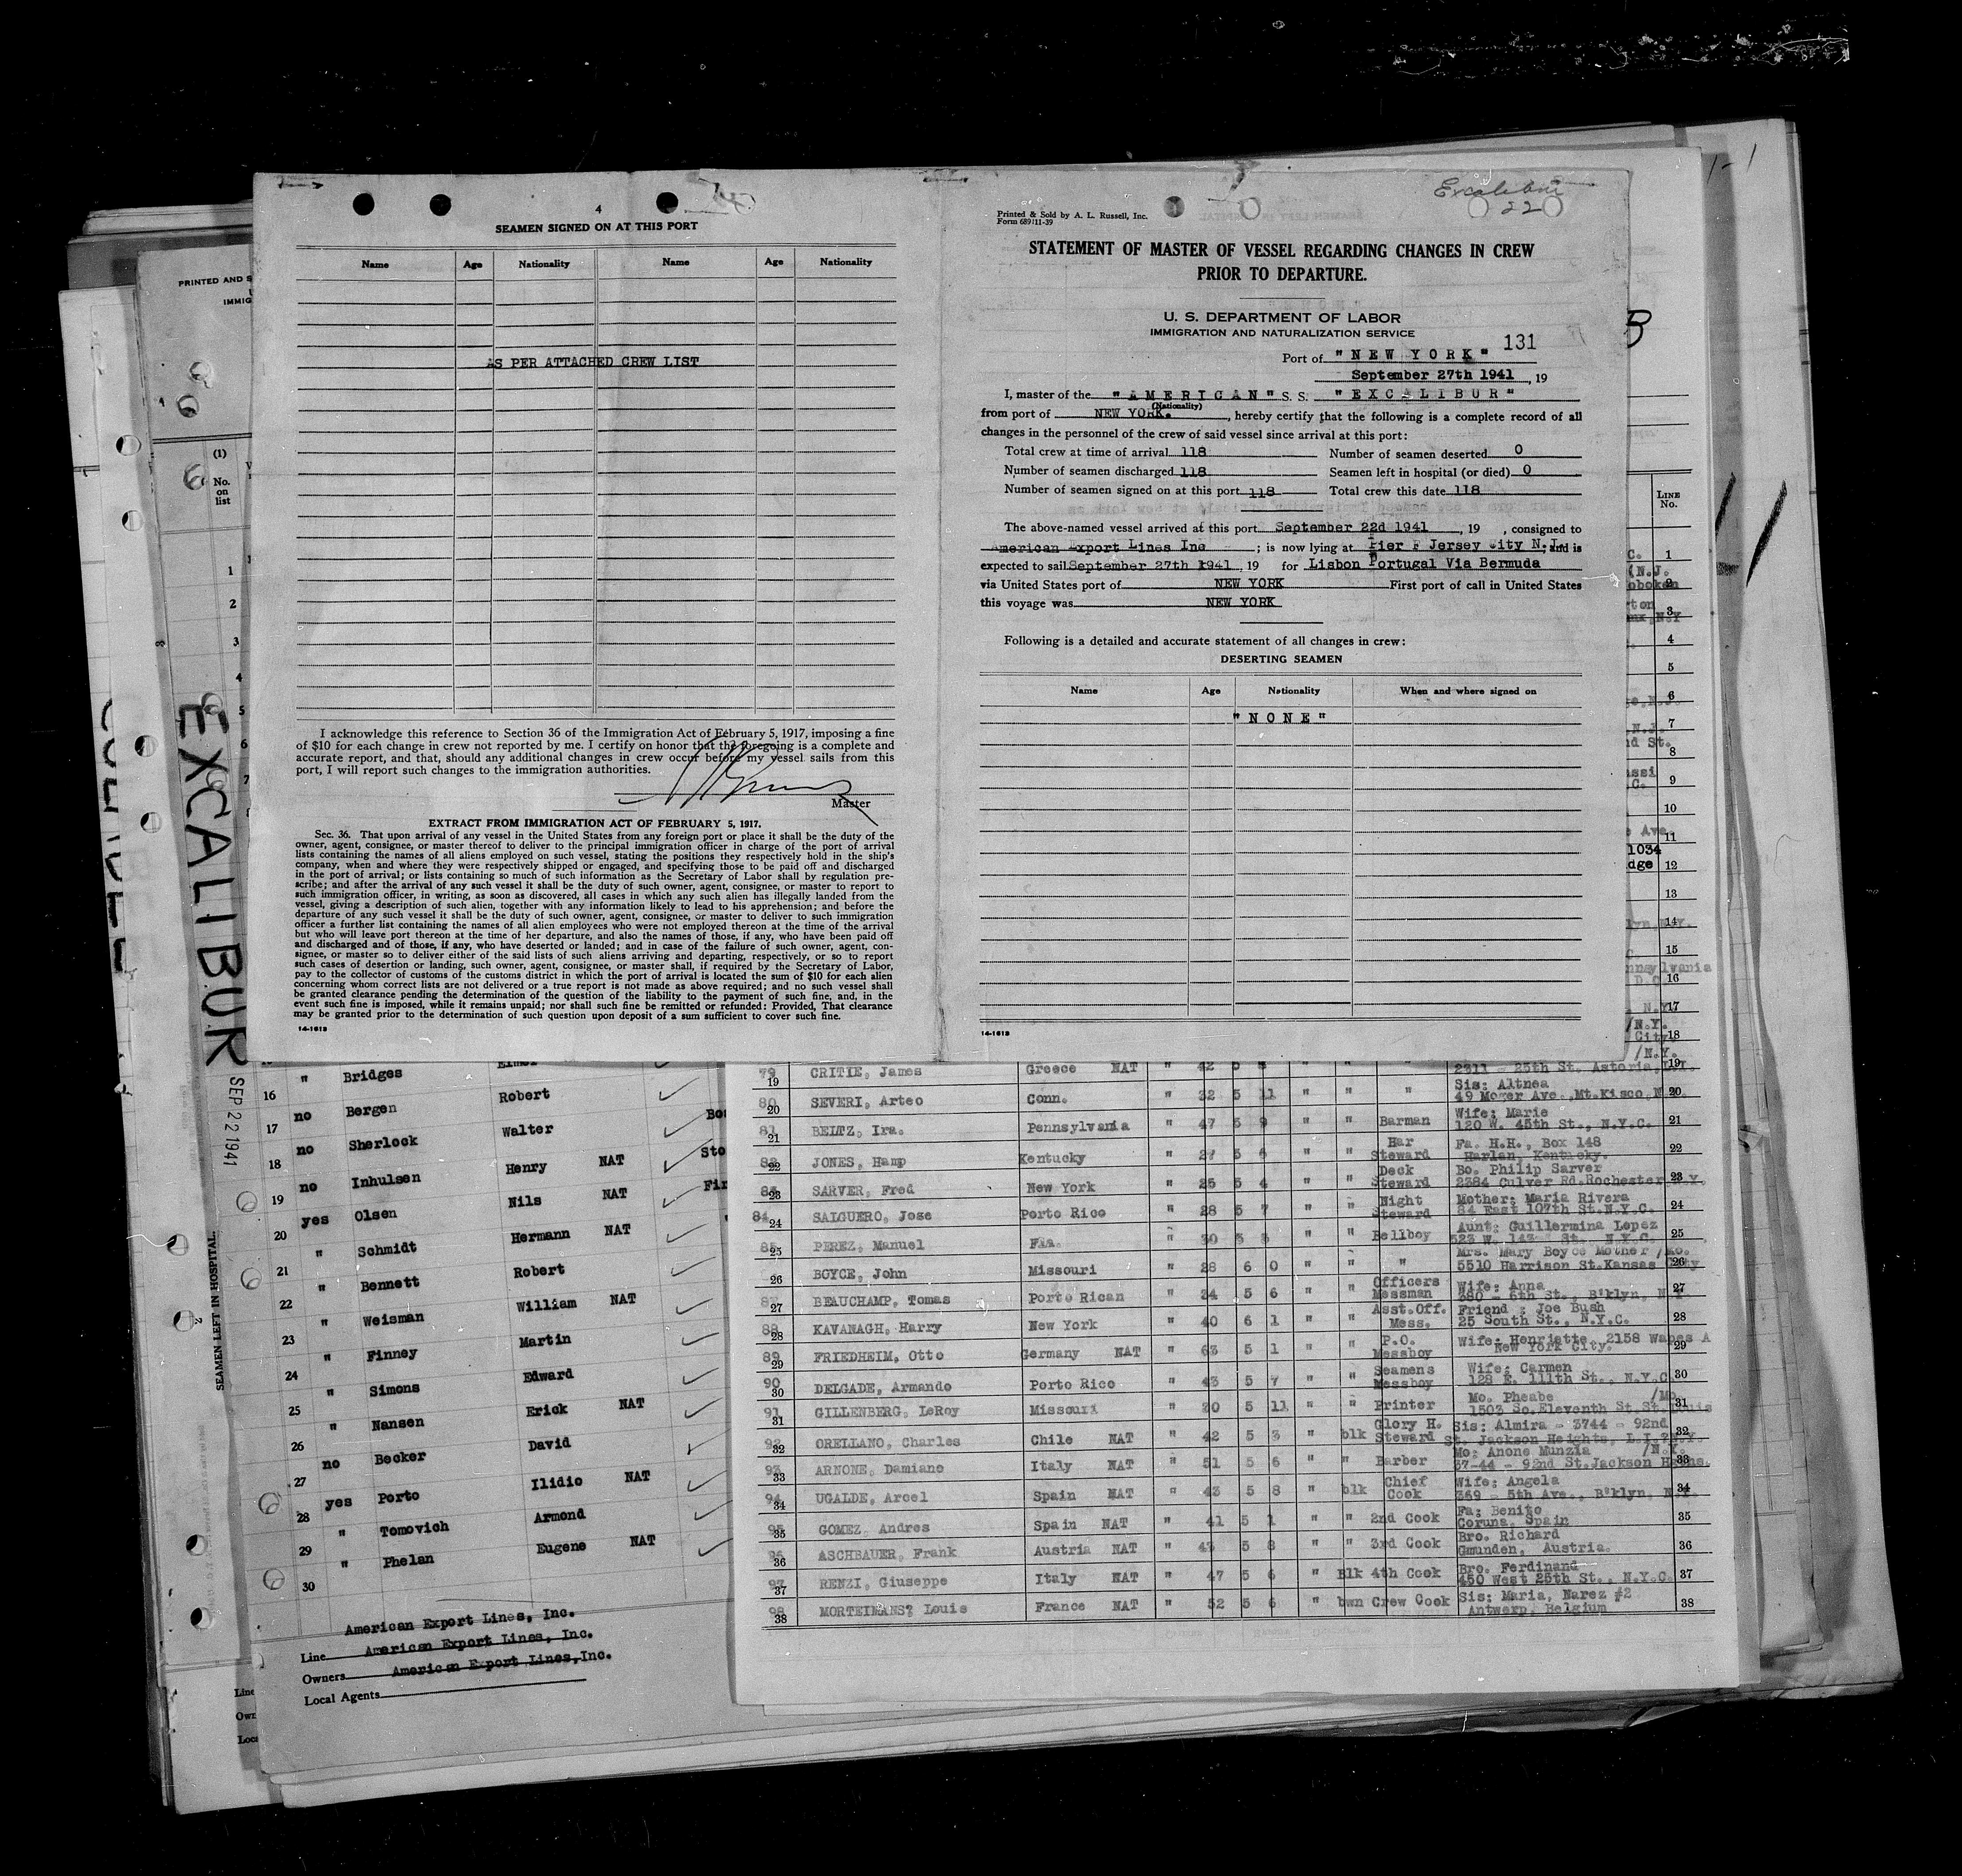 4
SEAMEN SIGNED ON AT THIS PORT
Name Age Nationality Name Age Nationality
AS PER ATTACHED CREW LIST
I acknowledge this reference to Section 36 of the Immigration Act of February 5, 1917, imposing a fine
of $10 for each change in crew not reported by me. I certify on honor that the foregoing is a complete and
accurate report, and that, should any additional changes in crew occur before my vessel sails from this
port, I will report such changes to the immigration authorities.
Master
EXTRACT FROM IMMIGRATION ACT OF FEBRUARY 5, 1917.
Sec. 36. That upon arrival of any vessel in the United States from any foreign port or place it shall be the duty of the
owner, agent, consignee, or master thereof to deliver to the principal immigration officer in charge of the port of arrival
lists containing the names of all aliens employed on such vessel, stating the positions they respectively hold in the ship's
company, when and where they were respectively shipped or engaged, and specifying those to be paid off and discharged
in the port of arrival; or lists containing so much of such information as the Secretary of Labor shall by regulation pre-
scribe; and after the arrival of any such vessel it shall be the duty of such owner, agent, consignee, or master to report to
such immigration officer, in writing, as soon as discovered, all cases in which any such alien has illegally landed from the
vessel, giving a description of such alien, together with any information likely to lead to his apprehension; and before the
departure of any such vessel it shall be the duty of such owner, agent, consignee, or master to deliver to such immigration
officer a further list containing the names of all alien employees who were not employed thereon at the time of the arrival
but who will leave port thereon at the time of her departure, and also the names of those, if any, who have been paid off
and discharged and of those, if any, who have deserted or landed; and in case of the failure of such owner, agent, con-
signee, or master so to deliver either of the said lists of such aliens arriving and departing, respectively, or so to report
such cases of desertion or landing, such owner, agent, consignee, or master shall, if required by the Secretary of Labor,
pay to the collector of customs of the customs district in which the port of arrival is located the sum of $10 for each alien
concerning whom correct lists are not delivered or a true report is not made as above required; and no such vessel shall
be granted clearance pending the determination of the question of the liability to the payment of such fine, and, in the
event such fine is imposed, while it remains unpaid; nor shall such fine be remitted or refunded: Provided, That clearance
may be granted prior to the determination of such question upon deposit of a sum sufficient to cover such fine.
14-1613
Excalibur
22
Printed & Sold by A. L. Russell, Inc.
Form 689/11-39
STATEMENT OF MASTER OF VESSEL REGARDING CHANGES IN CREW
PRIOR TO DEPARTURE.
U. S. DEPARTMENT OF LABOR
IMMIGRATION AND NATURALIZATION SERVICE
131
Port of "NEW YORK"
September 27th 1941, 19
I, master of the "AMERICAN" S. S. "EXCALIBUR"
(Nationality)
from port of NEW YORK., hereby certify that the following is a complete record of all
changes in the personnel of the crew of said vessel since arrival at this port:
Total crew at time of arrival 118 Number of seamen deserted 0
Number of seamen discharged 118 Seamen left in hospital (or died) 0
Number of seamen signed on at this port 118 Total crew this date 118
The above-named vessel arrived at this port September 22d 1941, 19 , consigned to
American Export Lines Inc ; is now lying at Pier F Jersey City N.J. ; and is
expected to sail September 27th 1941, 19 for Lisbon Portugal Via Bermuda
via United States port of NEW YORK First port of call in United States
this voyage was NEW YORK
Following is a detailed and accurate statement of all changes in crew:
DESERTING SEAMEN
Name Age Nationality When and where signed on
"NONE"
14-1613
PRINTED AND S
IMMIG
(1)
No.
on
list
1
2
3
4
5
6
7
EXCALIBUR
SEP 22 1941
SEAMEN LEFT IN HOSPITAL.
16 " Bridges Elmer
17 no Bergen Robert
18 no Sherlock Walter
19 no Inhulsen Henry NAT
20 yes Olsen Nils NAT
21 " Schmidt Hermann NAT
22 " Bennett Robert
23 " Weisman William NAT
24 " Finney Martin
25 " Simons Edward
26 " Nansen Erick NAT
27 no Becker David
28 yes Porto Ilidio NAT
29 " Tomovich Armond
30 " Phelan Eugene NAT
American Export Lines, Inc.
Line American Export Lines, Inc.
Owners American Export Lines, Inc.
Local Agents
LINE
No.
1
2
3
4
5
6
7
8
9
10
11
12
13
14
15
16
17
18
79 19 CRITIE, James Greece NAT " 42 5 " " " 2311 - 25th St. Astoria, 19
80 20 SEVERI, Arteo Conn. " 32 5 11 " " " Sis: Altnea 49 Moger Ave. Mt.Kisco, N. 20
81 21 BELTZ, Ira. Pennsylvania " 47 5 9 " " Barman Wife: Marie 120 W. 45th St., N.Y.C. 21
22 JONES, Hamp Kentucky " 27 5 6 " " Bar Steward Fa. H.H., Box 148 Harlan, Kentucky. 22
23 SARVER, Fred New York " 25 5 4 " " Deck Steward Bo. Philip Sarver 2384 Culver Rd.Rochester N.Y. 23
84 24 SALGUERO, Jose Porto Rico " 28 5 7 " " Night Steward Mother: Maria Rivera 84 East 107th St.N.Y.C. 24
85 25 PEREZ, Manuel Fla. " 30 5 " " Bellboy Aunt: Guillermina Lopez 523 W. 143 St. N.Y.C. 25
26 BOYCE, John Missouri " 28 6 0 " " " Mrs. Mary Boyce Mother /Mo. 5510 Harrison St.Kansas City 26
87 27 BEAUCHAMP, Tomas Porto Rican " 24 5 6 " " Officers Messman Wife: Anna 380 - 6th St., B'klyn, N.Y. 27
88 28 KAVANAGH, Harry New York " 40 6 1 " " Asst.Off. Mess. Friend : Joe Bush 25 South St., N.Y.C. 28
89 29 FRIEDHEIM, Otto Germany NAT " 63 5 1 " " P.O. Messboy Wife: Henriette, 2158 New York City. 29
90 30 DELGADE, Armando Porto Rico " 43 5 7 " " Seamens Messboy Wife: Carmen 128 E. 111th St., N.Y.C. 30
91 31 GILLENBERG, LeRoy Missouri " 20 5 11 " " Printer Mo. Pheabe /Mo. 1503 So.Eleventh St.St.Louis 31
92 32 ORELLANO, Charles Chile NAT " 42 5 3 " blk Glory H. Steward Sis: Almira - 3744 - 92nd St. Jackson Heights, L.I. N.Y. 32
93 33 ARNONE, Damiano Italy NAT " 51 5 6 " " Barber Mo: Anone Munzia /N.Y. 37-44 - 92nd St.Jackson 33
94 34 UGALDE, Arcel Spain NAT " 43 5 8 " blk Chief Cook Wife: Angela 369 - 5th Ave., B'klyn, N.Y. 34
95 35 GOMEZ, Andres Spain NAT " 41 5 1 " " 2nd Cook Fa: Benito Coruna, Spain 35
36 ASCHBAUER, Frank Austria NAT " 43 5 8 " " 3rd Cook Bro. Richard Gmunden, Austria. 36
97 37 RENZI, Giuseppe Italy NAT " 47 5 6 " Blk 4th Cook Bro. Ferdinand 450 West 25th St., N.Y.C. 37
98 38 MORTEIMANS? Louis France NAT " 52 5 6 " bwn Crew Cook Sis: Maria, Narez #2 Antwerp, Belgium 38